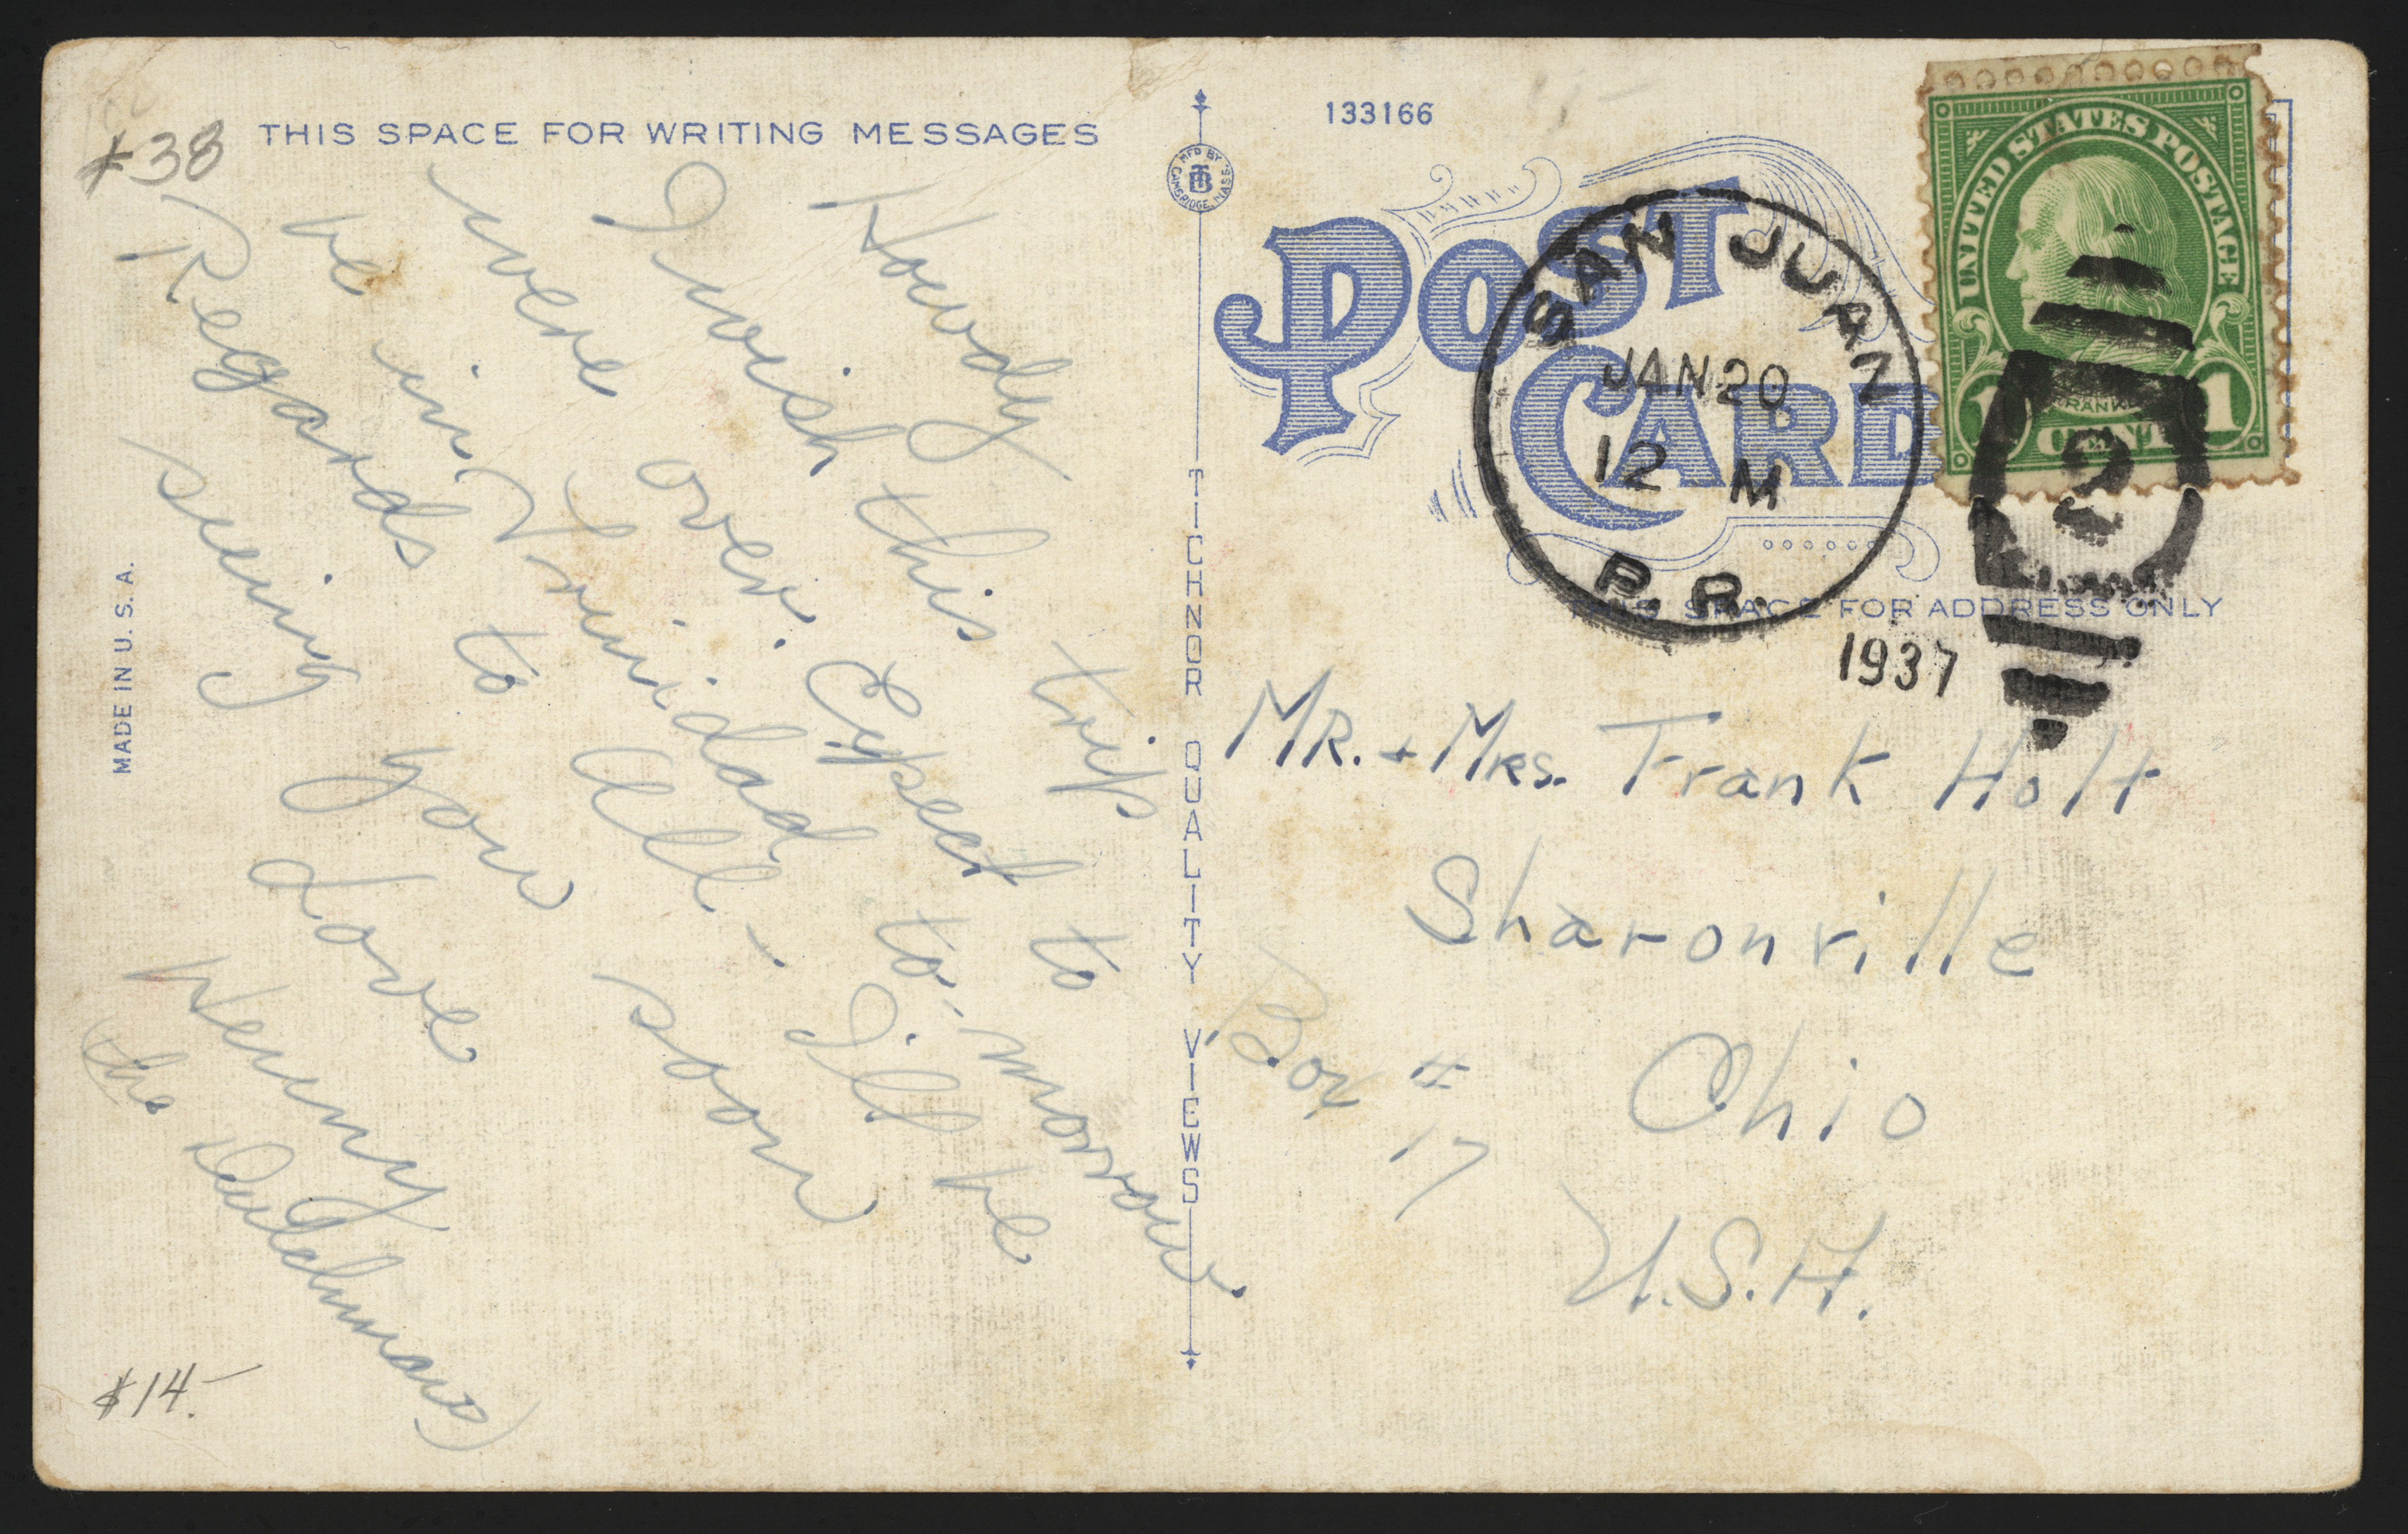 $38
THIS SPACE FOR WRITING MESSAGES
Howdy
I wish this trip
were over. Expect to
be in Trinidad to-morrow.
Regards to all - I'll be
seeing you soon
Love
Henny
(the Dutchman)
$14.-
MADE IN U. S. A.
MFD BY
TB
CAMBRIDGE, MASS.
TICHNOR QUALITY VIEWS
133166
POST CARD
UNITED STATES POSTAGE
1 CENT 1
SAN JUAN
JAN 20
12 M
P. R.
1937
2
THIS SPACE FOR ADDRESS ONLY
MR. + MRS. Frank Holt
Sharonville
Box # 17
Ohio
U.S.A.